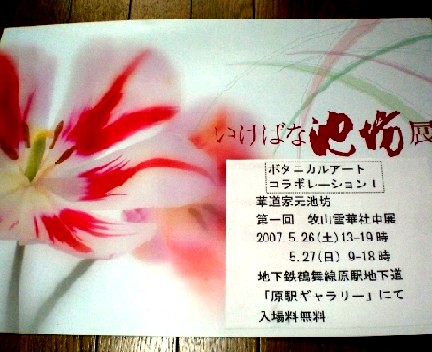 いけばな池坊展
ボタニカルアート
コラボレーション!
華道家元池坊
第一回 牧山雲華社中展
2007.5.26(土)13-19時
5.27(日) 9-18時
地下鉄鶴舞線原駅地下道
「原駅ギャラリー」にて
入場料無料